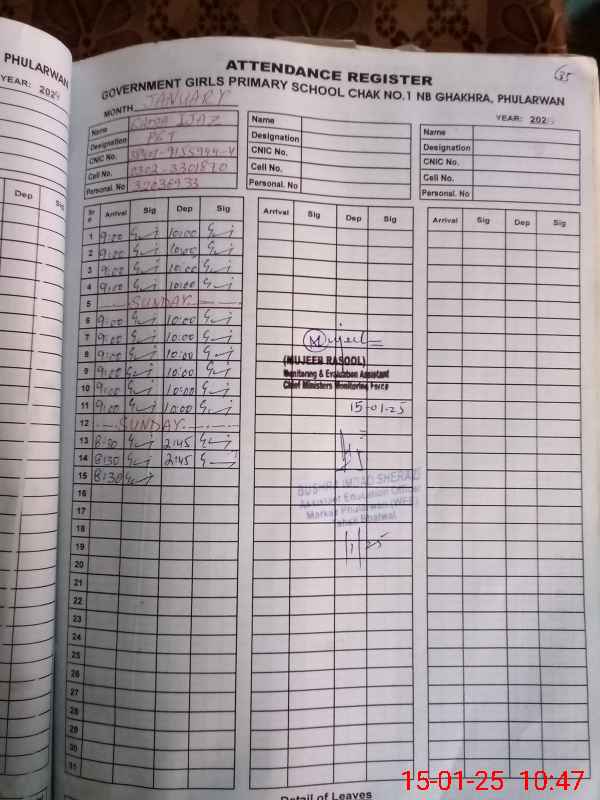 PHULARWAN
YEAR: 2024
Dep
Sig
ATTENDANCE REGISTER
GOVERNMENT GIRLS PRIMARY SCHOOL CHAK NO.1 NB GHAKHRA, PHULARWAN
MONTH JANUARY
YEAR: 2025
Name IJAZ
Designation PET
CNIC No.
Cell No. 0302-3301870
Personal. No 32036933
Name
Designation
CNIC No.
Cell No.
Personal. No
Name
Designation
CNIC No.
Cell No.
Personal. No
Sr # Arrival Sig Dep Sig Arrival Sig Dep Sig Arrival Sig Dep Sig
1 9:00 10:00
2 9:00 10:00
3 9:00 10:00
4 9:00 10:00
5 SUNDAY
6 9:00 10:00
7 9:00 10:00
8 9:00 10:00
9 9:00 10:00
10 9:00 10:00
11 9:00 10:00
12 SUNDAY
13 8:30 2:45
14 8:30 2:45
15 8:30
16
17
18
19
20
21
22
23
24
25
26
27
28
29
30
31
Mujeeb
(MUJEEB RASOOL)
Monitoring & Evaluation Assistant
Chief Ministers Monitoring Force
15-01-25
BUSHRA IMDAD SHERAZI
Assistant Education Officer
Markaz Phularwan (WEE)
Bhalwal
Detail of Leaves
15-01-25 10:47